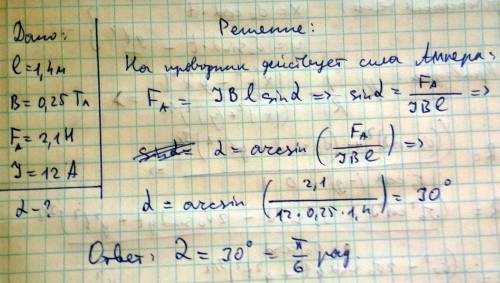 Дано:
l = 1,4 м
B = 0,25 Тл
F_A = 2,1 Н
J = 12 А
α - ?
Решение:
На проводник действует сила Ампера:
F_A = JBl sinα => sinα = F_A / JBl =>
α = arcsin (F_A / JBl) =>
α = arcsin (2,1 / 12·0,25·1,4) = 30°
Ответ: α = 30° = π/6 рад.